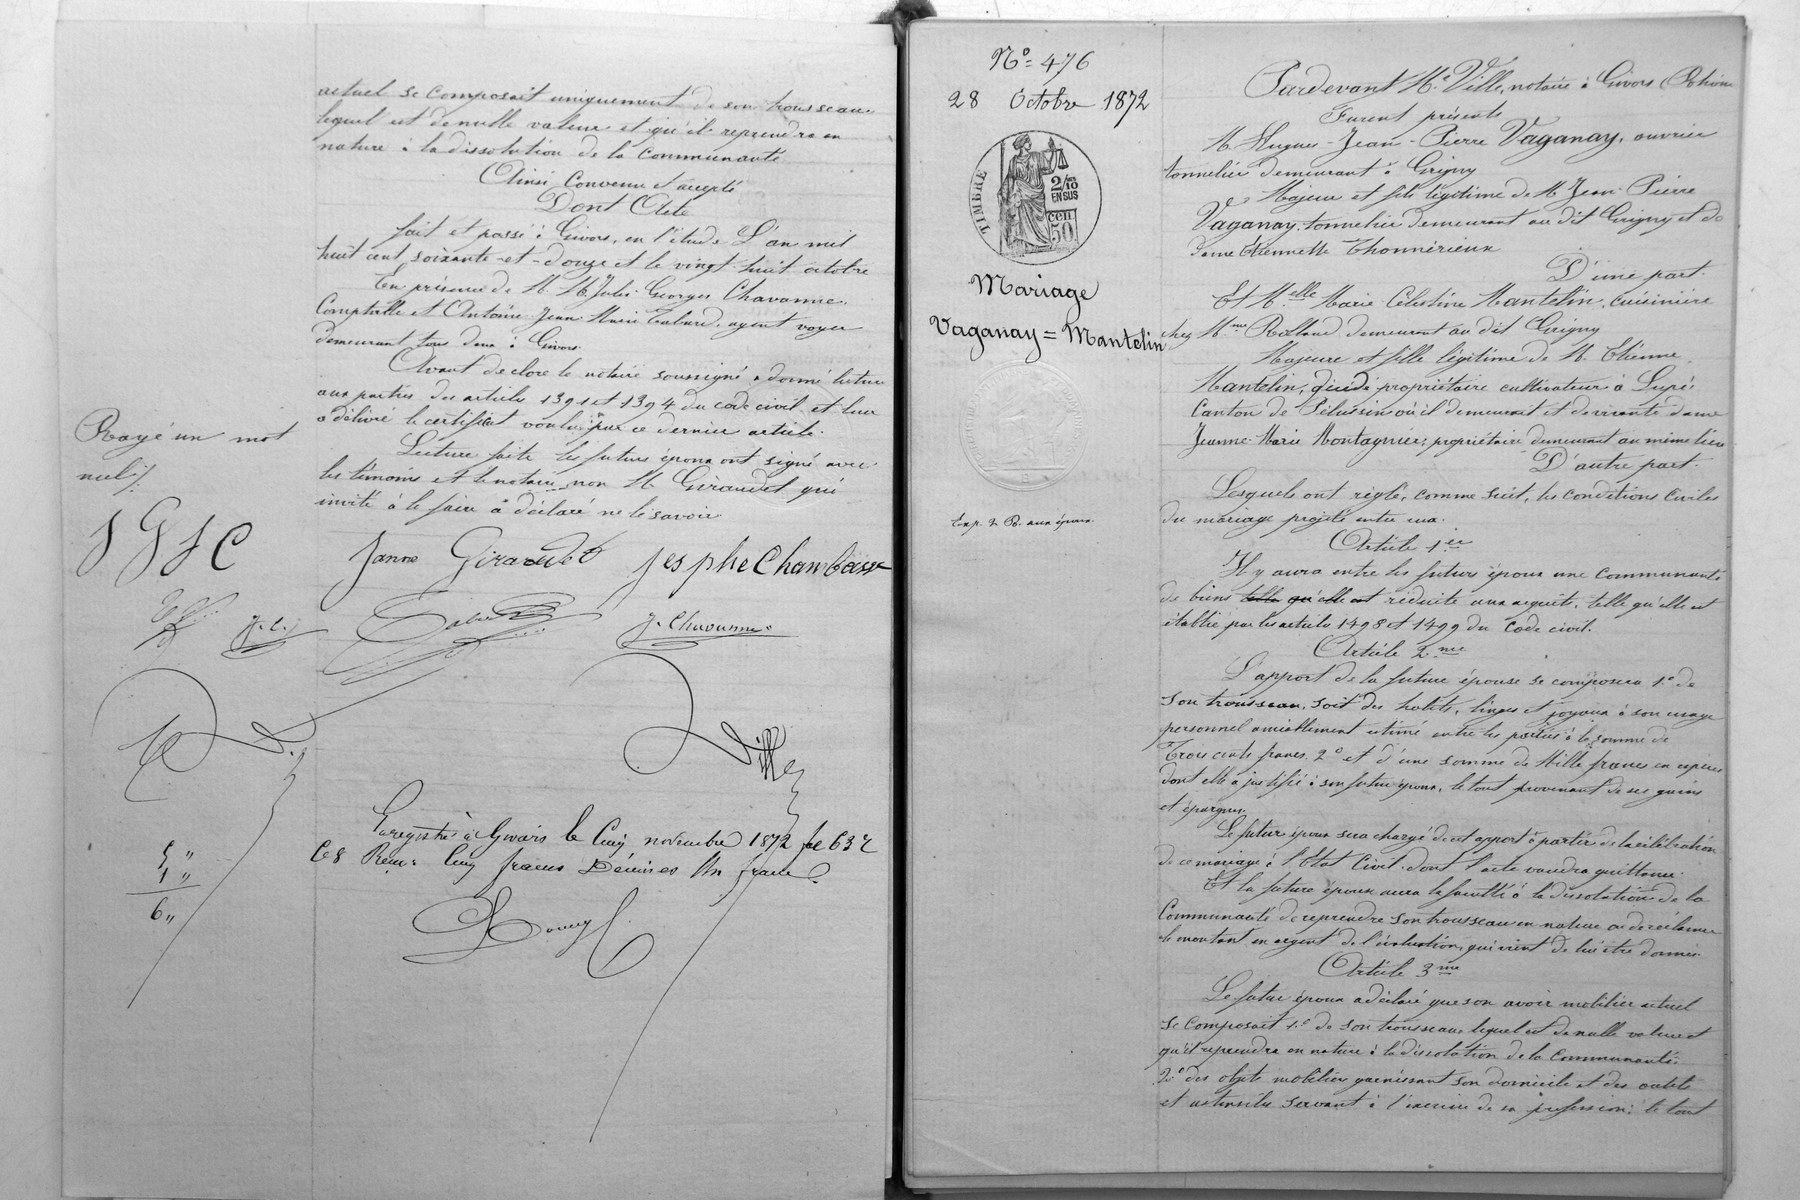 actuel se composait uniquement de son trousseau
lequel est de nulle valeur et qu'il reprendra en
nature à la dissolution de la communauté
Ainsi convenu et accepté
Dont Acte
fait et passé à Givors, en l'étude L'an mil
huit cent soixante-et-douze et le vingt-huit octobre
En présence de M. M. Jules Georges Chavanne
Comptable et Antoine Jean Marie Tabard, agent voyer
demeurant tous deux à Givors.
Avant de clore le notaire soussigné a donné lecture
aux parties des articles 1391 et 1394 du code civil et leur
a délivré le certificat voulu par ce dernier article.
Lecture faite les futurs époux ont signé avec
les témoins et le notaire, non M. Giraudet qui
invité à le faire a déclaré ne le savoir
Rayé un mot
nul
J G J C
Janne Giraudet Jesphe Chambeisse
J. C.
J. Chavanne
Ville
Enregistré à Givors le Cinq novembre 1872 fol 63 r
C 8 Reçu: Cinq francs Décimes Un franc
5 "
1 "
6 "
N° 476
28 Octobre 1872
TIMBRE
2/10
EN SUS
50
CEN
Mariage
Vaganay = Mantelin
Exp. & B. aux époux.
Pardevant Me Ville, notaire à Givors (Rhône
Furent présents
M. Hugues-Jean-Pierre Vaganay, ouvrier
tonnelier demeurant à Grigny
Majeur et fils légitime de M. Jean Pierre
Vaganay, tonnelier demeurant au dit Grigny et de
dame Etiennette Thonnérieux
D'une part.
Et Melle Marie Célestine Mantelin, cuisinière
chez Mme Rolland demeurant au dit Grigny
Majeure et fille légitime de M. Etienne
Mantelin, propriétaire cultivateur à Lupé
Canton de Pélussin où il demeurait et de vivante dame
Jeanne-Marie Montagnier, propriétaire demeurant au même lieu
D'autre part.
Lesquels ont réglé, comme suit, les conditions civiles
du mariage projeté entre eux.
Article 1er
Il y aura entre les futurs époux une communauté
de biens telle qu'elle est réduite aux acquêts, telle qu'elle est
établie par les articles 1498 et 1499 du Code civil.
Article 2me
L'apport de la future épouse se composera 1° de
son trousseau, soit des habits, linges et joyaux à son usage
personnel amiablement estimé entre les parties à la somme de
Trois cents francs 2° et d'une somme de Mille francs en espèces
dont elle a justifié à son futur époux, le tout provenant de ses gains
et épargnes.
Le futur époux sera chargé de cet apport à partir de la célébration
de ce mariage à l'Etat Civil dont l'acte vaudra quittance.
Et la future épouse aura la faculté à la dissolution de la
Communauté de reprendre son trousseau en nature ou de réclamer
le montant en argent de l'évaluation, qui vient de lui être donnée
Article 3me
Le futur époux a déclaré que son avoir mobilier actuel
se composait 1° de son trousseau lequel est de nulle valeur et
qu'il reprendra en nature à la dissolution de la communauté
2° des objets mobiliers garnissant son domicile et des outils
et ustensiles servant à l'exercice de sa profession; le tout